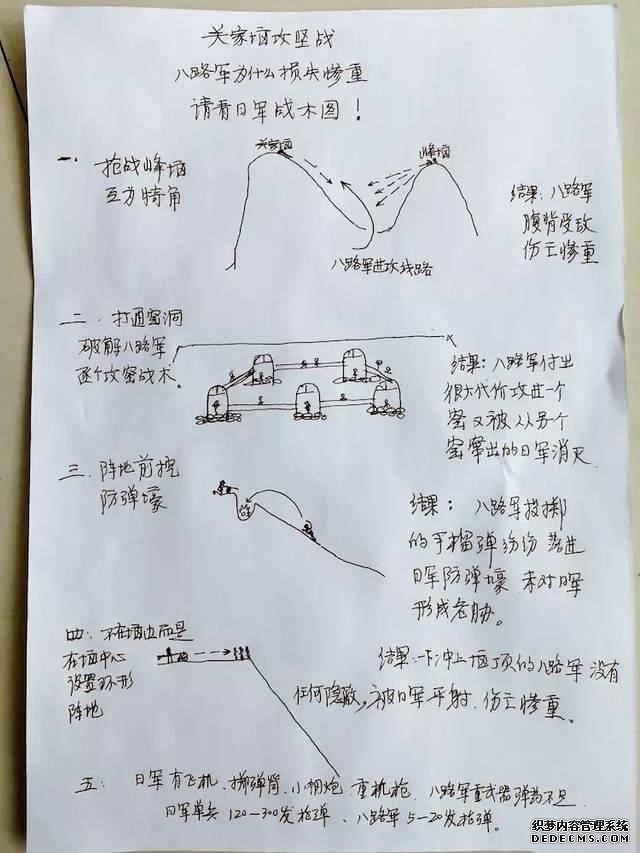 关家垴攻坚战
八路军为什么损失惨重
请看日军战术图！
一、抢战峰垴
互为犄角
关家垴
峰垴
八路军进攻线路
结果：八路军
腹背受敌
伤亡惨重
二、打通窑洞
破解八路军
逐个攻窑战术。
结果：八路军付出
很大代价攻进一个
窑又被从另个
窑窜出的日军消灭
三、阵地前挖
防弹壕
结果：八路军投掷
的手榴弹纷纷落进
日军防弹壕，未对日军
形成危胁。
四、不在垴边而是
在垴中心
设置环形
阵地
结果：一下冲上垴顶的八路军没有
任何隐蔽，被日军平射，伤亡惨重。
五：日军有飞机、掷弹筒、小钢炮、重机枪、八路军重武器弹药不足
日军单兵120—300发枪弹、八路军5—20发枪弹。
织梦内容管理系统
DEDECMS.COM